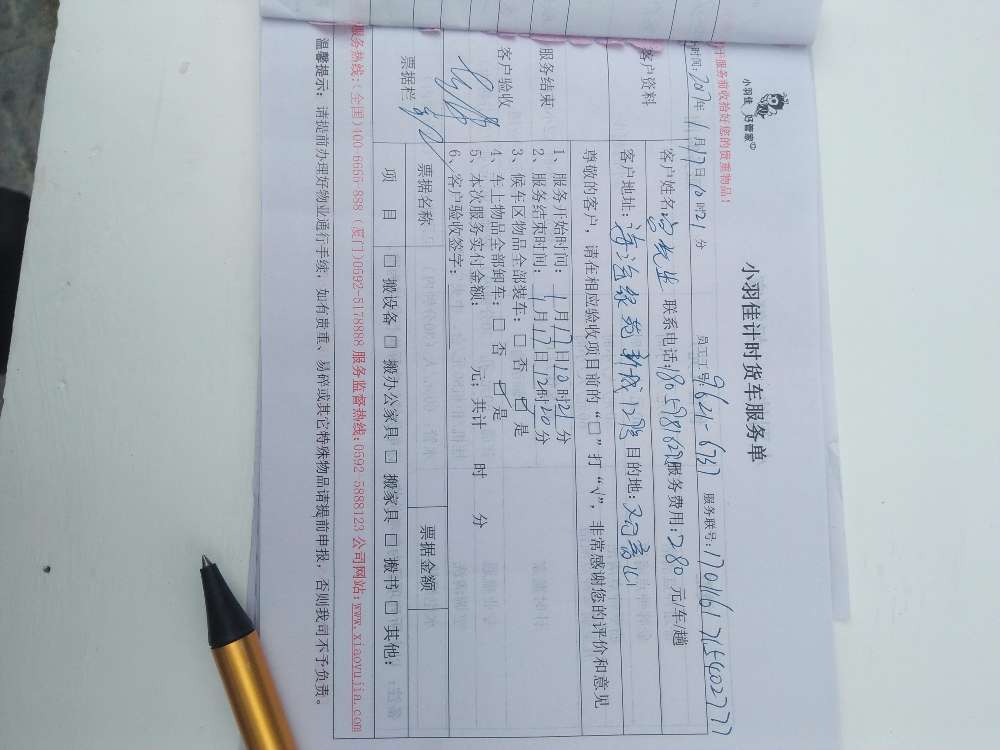 小羽佳 好管家
小羽佳计时货车服务单
服务前收拾好您的贵重物品!
员工工号: 9621-6757 服务联号:
时间: 2017年1月17日10时21分
客户资料
客户姓名: 联系电话: 服务费用: 280元/车/趟
客户地址: 目的地:
尊敬的客户，请在相应验收项目前的“□”打“√”，非常感谢您的评价和意见
服务结束
客户验收
1、服务开始时间: 1月17日10时21分
2、服务结束时间: 1月17日12时20分
3、候车区物品全部装车: □ 否 ☑ 是
4、车上物品全部卸车: □ 否 ☑ 是
5、本次服务实付金额: 元; 共计 时 分
6、客户验收签字:
票据栏
票据名称 票据金额
项 目 □ 搬设备 □ 搬办公家具 □ 搬家具 □ 搬书 □ 其他:
服务热线:(全国)400-6666-888 (厦门)0592-5178888 服务监督热线:0592-5888123 公司网站:www.xiaoyujia.com
温馨提示: 请提前办理好物业通行手续，如有贵重、易碎或其它特殊物品请提前申报，否则我司不予负责。